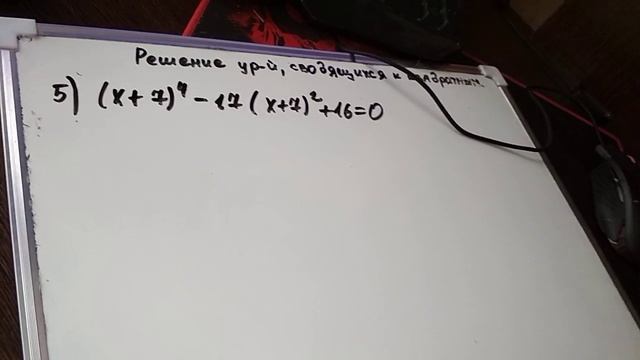 Решение ур-й, сводящихся к квадратным.
5) (x+7)⁴ - 17(x+7)² + 16 = 0